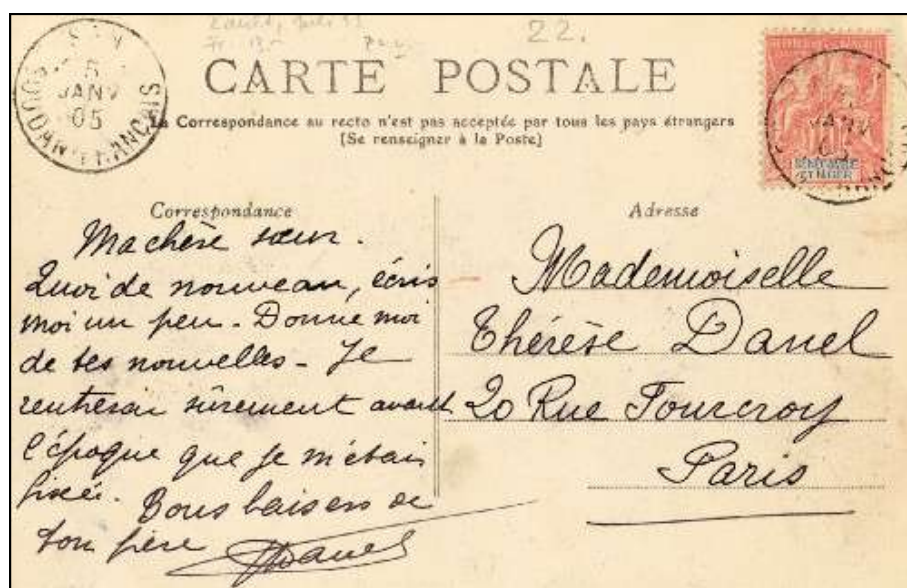 22.
SAN
5
JANV
05
SOUDAN-FRANÇAIS
CARTE POSTALE
La Correspondance au recto n'est pas acceptée par tous les pays étrangers
(Se renseigner à la Poste)
JANV
SÉNÉGAMBIE
ET NIGER
Correspondance
Ma chère sœur.
Quoi de nouveau, écris
moi un peu. Donne moi
de tes nouvelles - Je
rentrerai sûrement avant
l'époque que je m'étais
fixée. Bons baisers de
ton frère
Danel
Adresse
Mademoiselle
Thérèse Danel
20 Rue Fourcroy
Paris